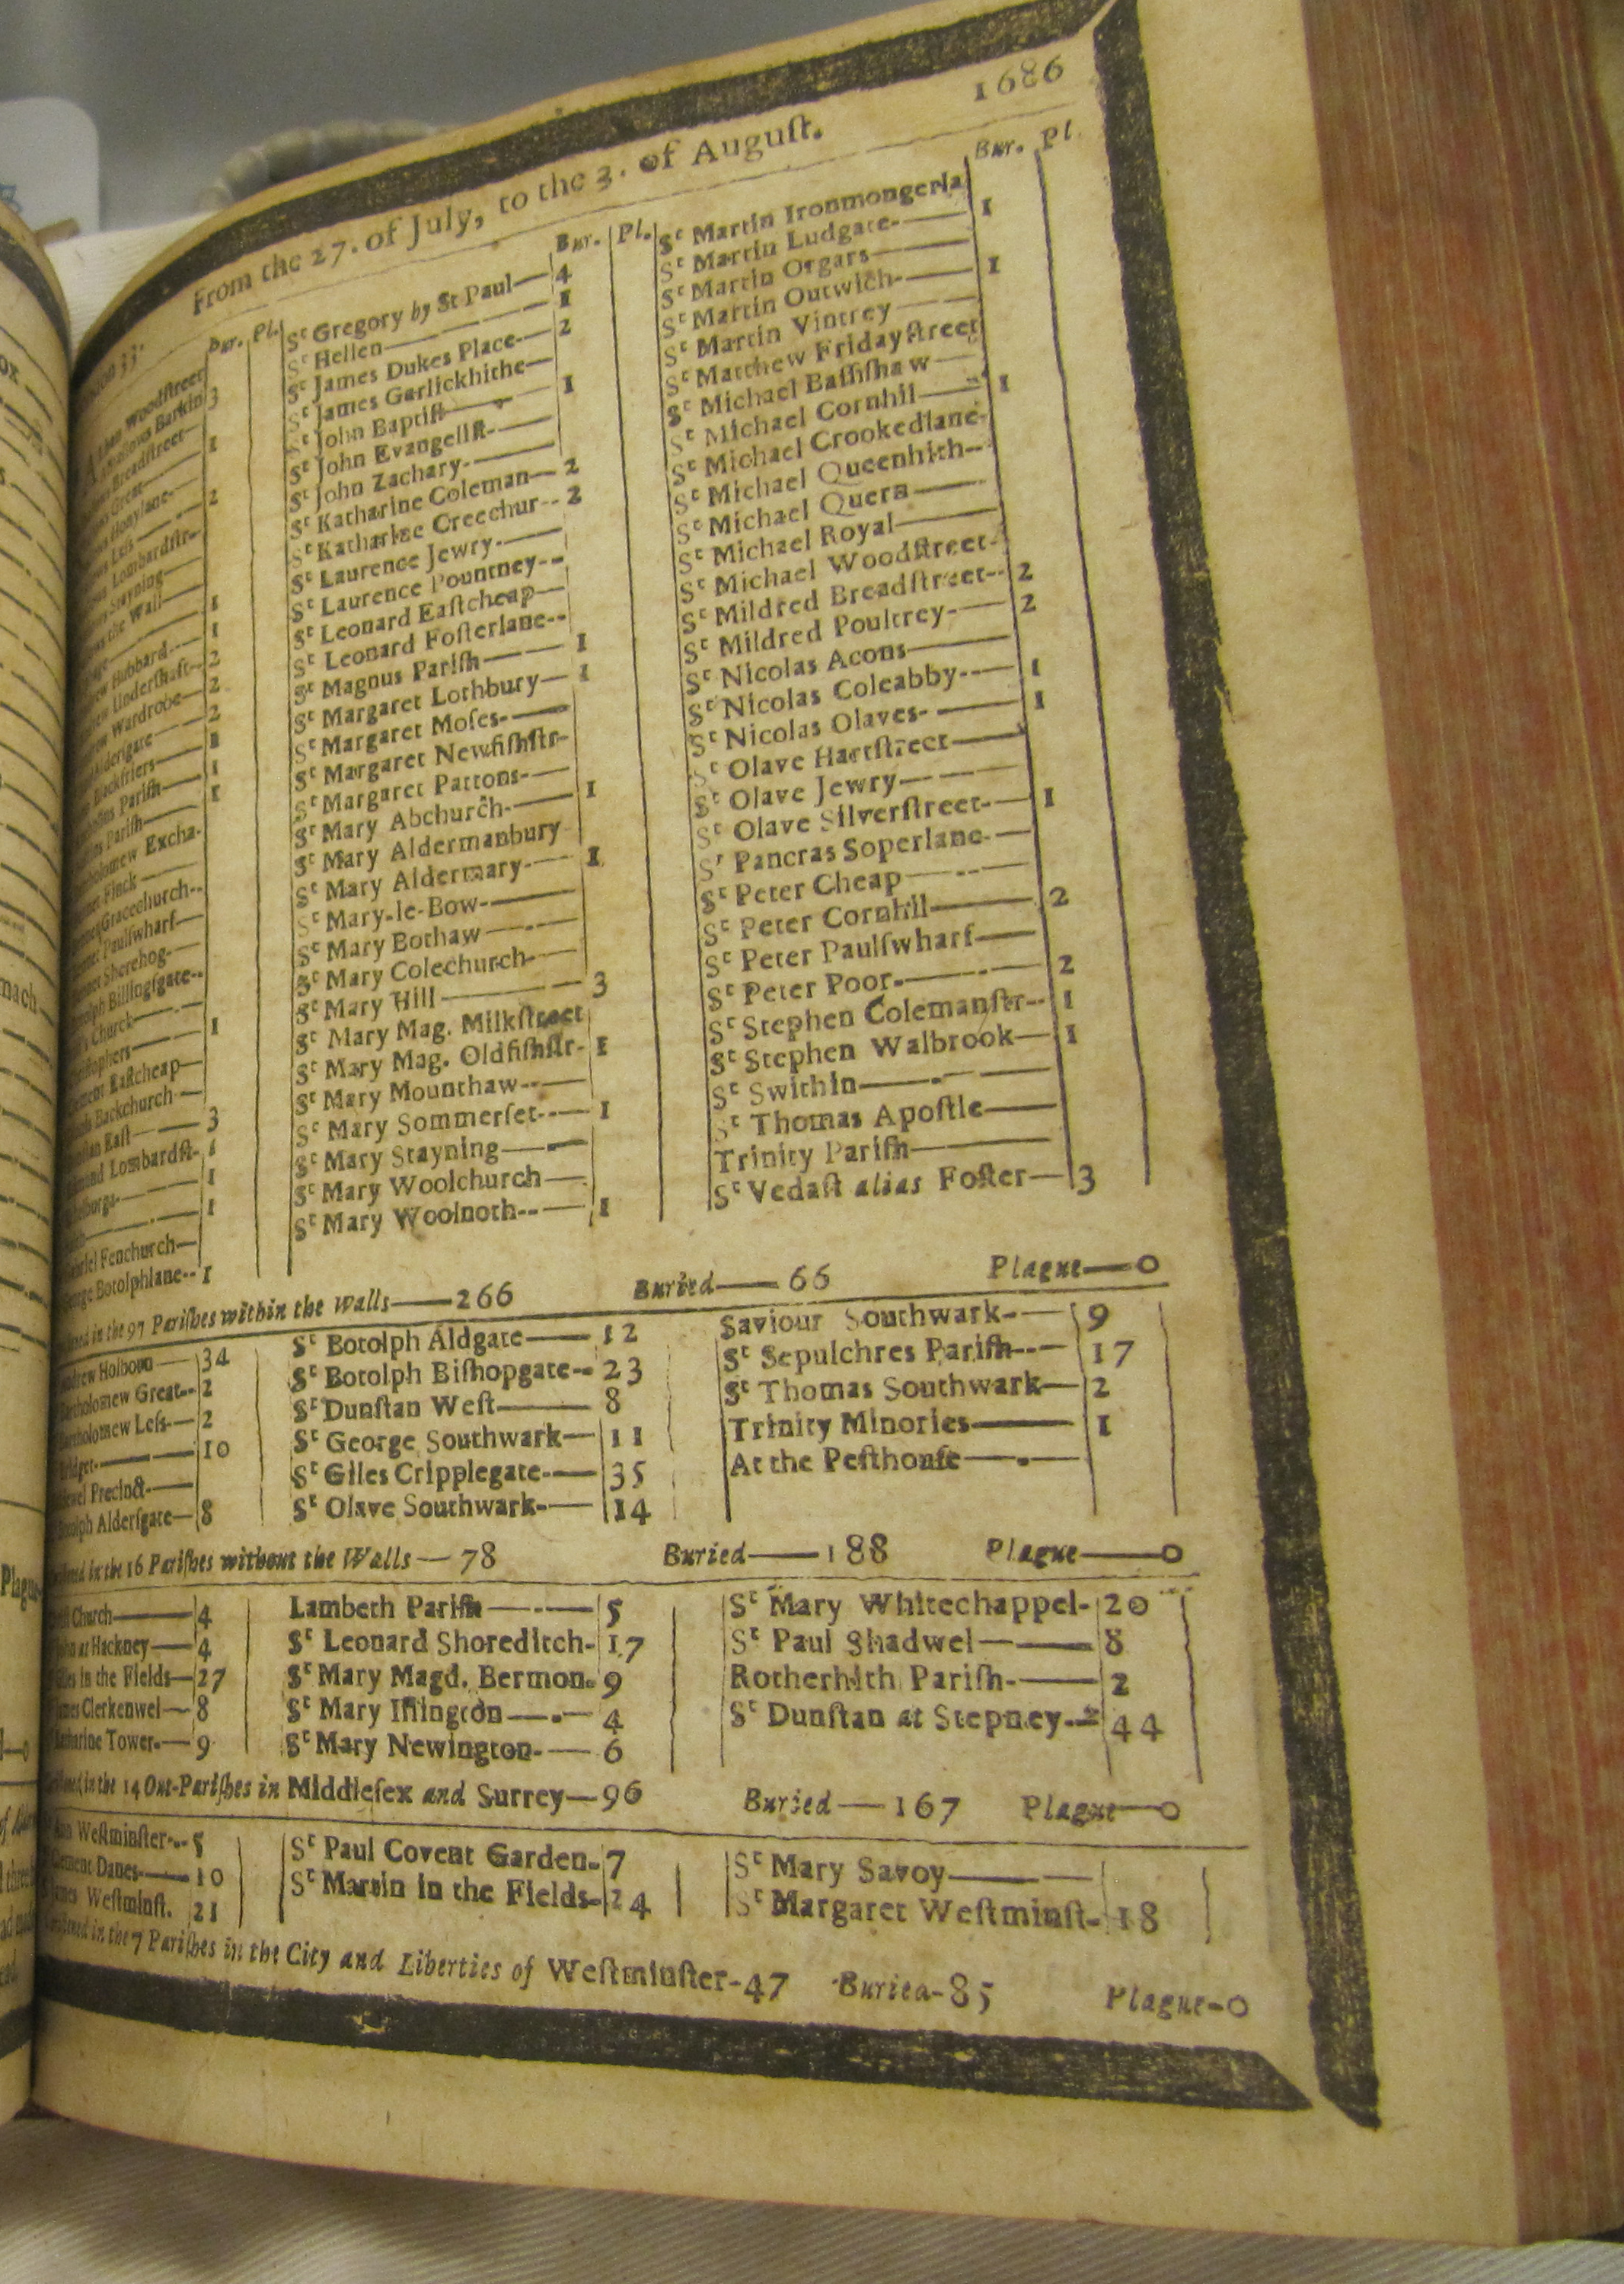 1686
From the 27. of July, to the 3. of August.
Bur. Pl.
Woodstreet
Barkin 3
Breadstreet
Great 1
Honylane
Less 2
Lombardstr
Stayning
the Wall
1
Hubbard 1
Undershaft 2
Wardrobe 2
Aldersgate 2
Blackfriers 1
Parish 1
Parish 1
Excha-
Finck
Gracechurch
Paulſwharf
Sherehog
Billingſgate
Church
1
Eaſtcheap
Backchurch
Eaſt 3
Lombardſt- 1
1
1
Fenchurch
Botolphlane-- 1
Bur. Pl.
St Gregory by St Paul 4
St Hellen 1
St James Dukes Place 2
St James Garlickhithe
St John Baptiſt 1
St John Evangeliſt
St John Zachary
St Katharine Coleman 2
St Katharine Creechur-- 2
St Laurence Jewry
St Laurence Pountney
St Leonard Eaſtcheap
St Leonard Foſterlane
St Magnus Pariſh 1
St Margaret Lothbury 1
St Margaret Moſes
St Margaret Newfiſhſtr-
St Margaret Pattons
St Mary Abchurch 1
St Mary Aldermanbury
St Mary Aldermary 1
St Mary-le-Bow
St Mary Bothaw
St Mary Colechurch
St Mary Hill 3
St Mary Mag. Milkſtreet
St Mary Mag. Oldfiſhſtr- 1
St Mary Mounthaw
St Mary Sommerſet 1
St Mary Stayning
St Mary Woolchurch
St Mary Woolnoth 1
Bur. Pl.
St Martin Ironmongerla
St Martin Ludgate 1
St Martin Orgars
St Martin Outwich 1
St Martin Vintrey
St Matthew Fridayſtreet
St Michael Baſſiſhaw
St Michael Cornhil 1
St Michael Crookedlane
St Michael Queenhith
St Michael Quern
St Michael Royal
St Michael Woodſtreet
St Mildred Breadſtreet 2
St Mildred Poultrey 2
St Nicolas Acons
St Nicolas Coleabby 1
St Nicolas Olaves 1
St Olave Hartſtreet
St Olave Jewry
St Olave Silverſtreet 1
St Pancras Soperlane
St Peter Cheap
St Peter Cornhil 2
St Peter Paulſwharf
St Peter Poor 2
St Stephen Colemanſtr-- 1
St Stephen Walbrook 1
St Swithin
St Thomas Apoſtle
Trinity Pariſh
St Vedaſt alias Foſter 3
in the 97 Pariſhes within the Walls—266 Buried—66 Plague—0
Holborn 34
Great 2
Leſs 2
10
Precinct
Alderſgate 8
St Botolph Aldgate 12
St Botolph Biſhopgate 23
St Dunſtan Weſt 8
St George Southwark 11
St Giles Cripplegate 35
St Olave Southwark 14
Saviour Southwark 9
St Sepulchres Pariſh 17
St Thomas Southwark 2
Trinity Minories 1
At the Peſthouſe
in the 16 Pariſhes without the Walls—78 Buried—188 Plague—0
Church 4
at Hackney 4
in the Fields 27
Clerkenwel 8
Tower 9
Lambeth Pariſh 5
St Leonard Shoreditch 17
St Mary Magd. Bermon. 9
St Mary Iſlington 4
St Mary Newington 6
St Mary Whitechappel 20
St Paul Shadwel 8
Rotherhith Pariſh 2
St Dunſtan at Stepney 44
in the 14 Out-Pariſhes in Middleſex and Surrey—96 Buried—167 Plague—0
Weſtminſter 5
Danes 10
Weſtminſt. 21
St Paul Covent Garden 7
St Martin in the Fields 24
St Mary Savoy
St Margaret Weſtminſt- 18
in the 7 Pariſhes in the City and Liberties of Weſtminſter-47 Buried-85 Plague-0